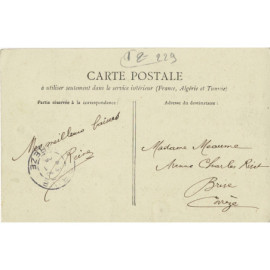 12-229
CARTE POSTALE
à utiliser seulement dans le service intérieur (France, Algérie et Tunisie)
Partie réservée à la correspondance
Adresse du destinataire
Mes meilleurs baisers
Reine
Madame Meaume
Avenue Charles
Brive
Corrèze